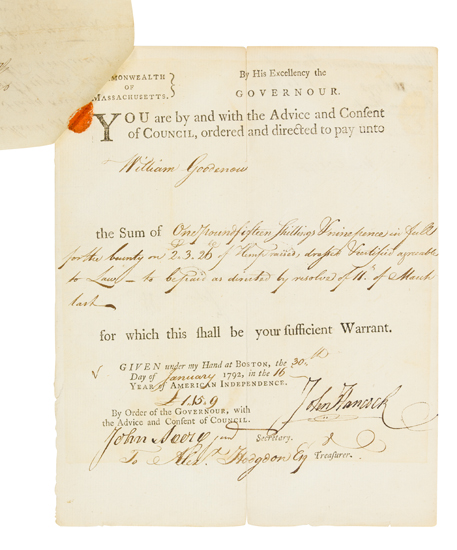 MONWEALTH
OF
MASSACHUSETTS.
By His Excellency the
GOVERNOUR.
YOU are by and with the Advice and Consent
of COUNCIL, ordered and directed to pay unto
William Goodenow
the Sum of One pound fifteen Shillings & nine pence in full
for the bounty on 2.3.26 of Hemp raised, dressed & certified agreeable
to Law – to be paid as directed by resolve of 11th of March
last –
for which this shall be your sufficient Warrant.
GIVEN under my Hand at BOSTON, the 30th
Day of January 1792, in the 16
YEAR of AMERICAN INDEPENDENCE.
£1.15.9
John Hancock
By Order of the GOVERNOUR, with
the Advice and Consent of COUNCIL.
John Avery jun Secretary.
To Alexr. Hodgdon Esq Treasurer.